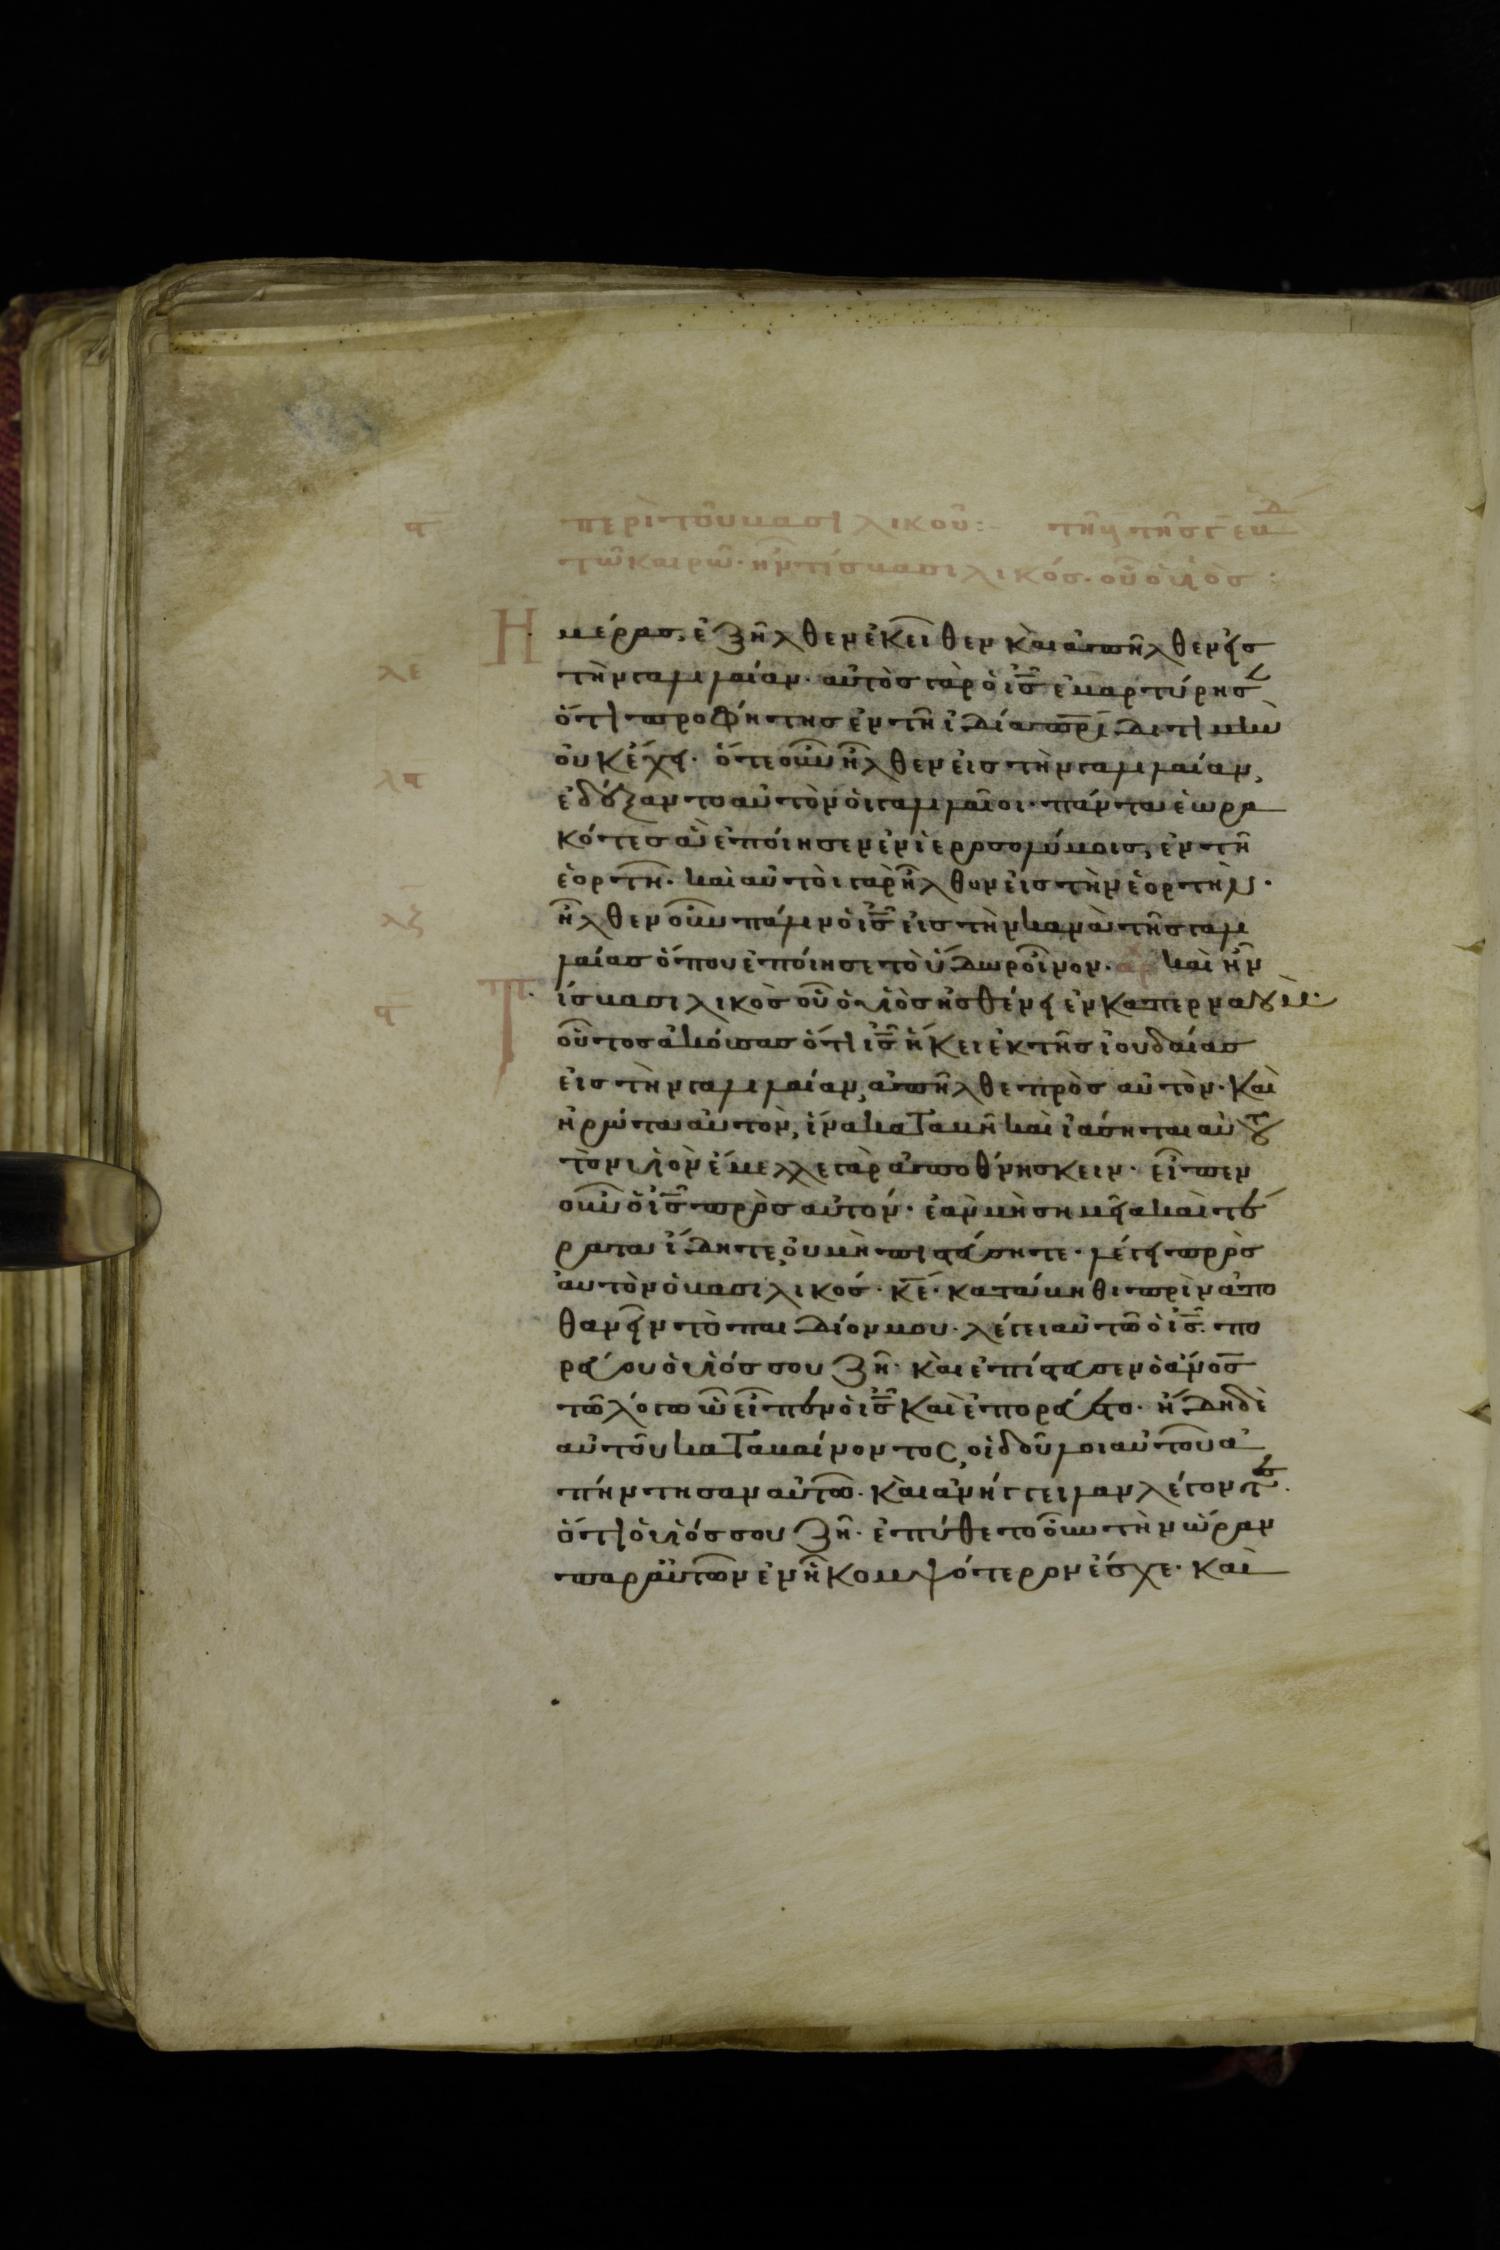 ϛ περὶ τοῦ βασιλικοῦ:- τῆ β τῆς γ ἑβδ
τῶ καιρῶ· ἦν τίσ βασιλικόσ· οὗ ὁ υἱὸσ :
Η μέρασ, ἐξῆλθεν ἐκεῖθεν καὶ ἀπῆλθεν εἰσ
λε τὴν γαλιλαίαν· αὐτὸσ γὰρ ὁ ἰς ἐμαρτύρησ
ὅτι προφήτησ ἐν τῆ ἰδία πρι δι τιμὴν
οὐκ ἔχει· ὅτε οὖν ἦλθεν εἰσ τὴν γαλιλαίαν,
λϛ ἐδέξαντο αὐτὸν ὁι γαλιλαῖοι· πάντα ἑωρα
κότεσ ἃ ἐποίησεν ἐν ἱεροσολύμοισ, ἐν τῆ
ἑορτῆ· καὶ αὐτὸι γὰρ ἦλθον εἰσ τὴν ἑορτήν·
λζ ἦλθεν οὖν πάλιν ὁ ἰς εἰσ τὴν κανὰ τῆσ γαλι
λαίασ ὅπου ἐποίησε τὸ ὕδωρ οἶνον· αρ καὶ ἦν
ϛ Τ ίσ βασιλικὸσ οὗ ὁ υἱὸσ ἠσθένει ἐν καπερναούμ·
οὗτοσ ἀκούσασ ὅτι ἰς ἥκει ἐκ τῆσ ἰουδαίασ
εἰσ τὴν γαλιλαίαν, ἀπῆλθε πρὸσ αὐτὸν· καὶ
ἠρώτα αὐτὸν, ἵνα καταβῆ καὶ ἰάσηται αὐτοῦ
τὸν υἱὸν ἔμελλε γὰρ ἀποθνήσκειν· εἶπεν
οὖν ὁ ἰς πρὸσ αὐτόν· ἐὰν μὴ σημεῖα καὶ τέ
ρατα ἴδητε, οὐ μὴ πιστεύσητε· λέγει πρὸσ
αὐτὸν ὁ βασιλικόσ· κε· κατάβηθι πρὶν ἀπο
θανεῖν τὸ παιδίον μου· λέγει αὐτῶ ὁ ἰς· πο
ρεύου ὁ υἱόσ σου ζῆ· καὶ ἐπίστευσεν ὁ ἄνος
τῶ λόγω ὧ εἶπεν ὁ ἰς καὶ ἐπορεύετο· ἤδη δὲ
αὐτοῦ καταβαίνοντος, οἱ δοῦλοι αὐτοῦ ἀ
πήντησαν αὐτῶ· καὶ ἀνήγγειλαν λέγοντες·
ὅτι ὁ υἱόσ σου ζῆ· ἐπύθετο οὖν τὴν ὥραν
παρ' αὐτῶν ἐν ἧ κομψότερον ἔσχε· καὶ